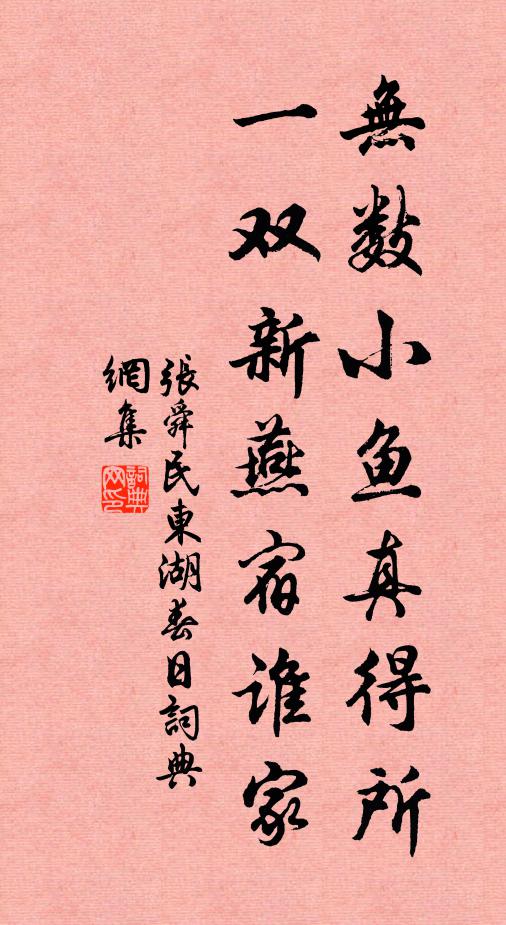 無数小鱼真得所
一双新燕宿谁家
張舜民東湖春日詞典
網集
詞典
网印